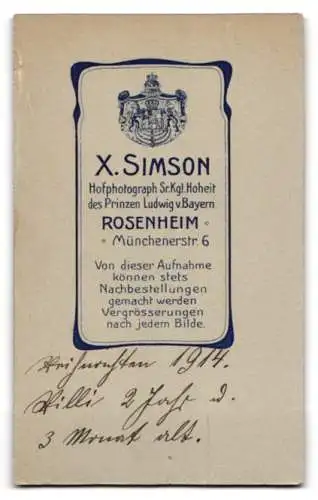 X. SIMSON
Hofphotograph Sr. Kgl. Hoheit
des Prinzen Ludwig v. Bayern
ROSENHEIM
Münchenerstr. 6
Von dieser Aufnahme
können stets
Nachbestellungen
gemacht werden
Vergrösserungen
nach jedem Bilde.
Weihnachten 1914.
Willi 2 Jahr u.
3 Monat alt.